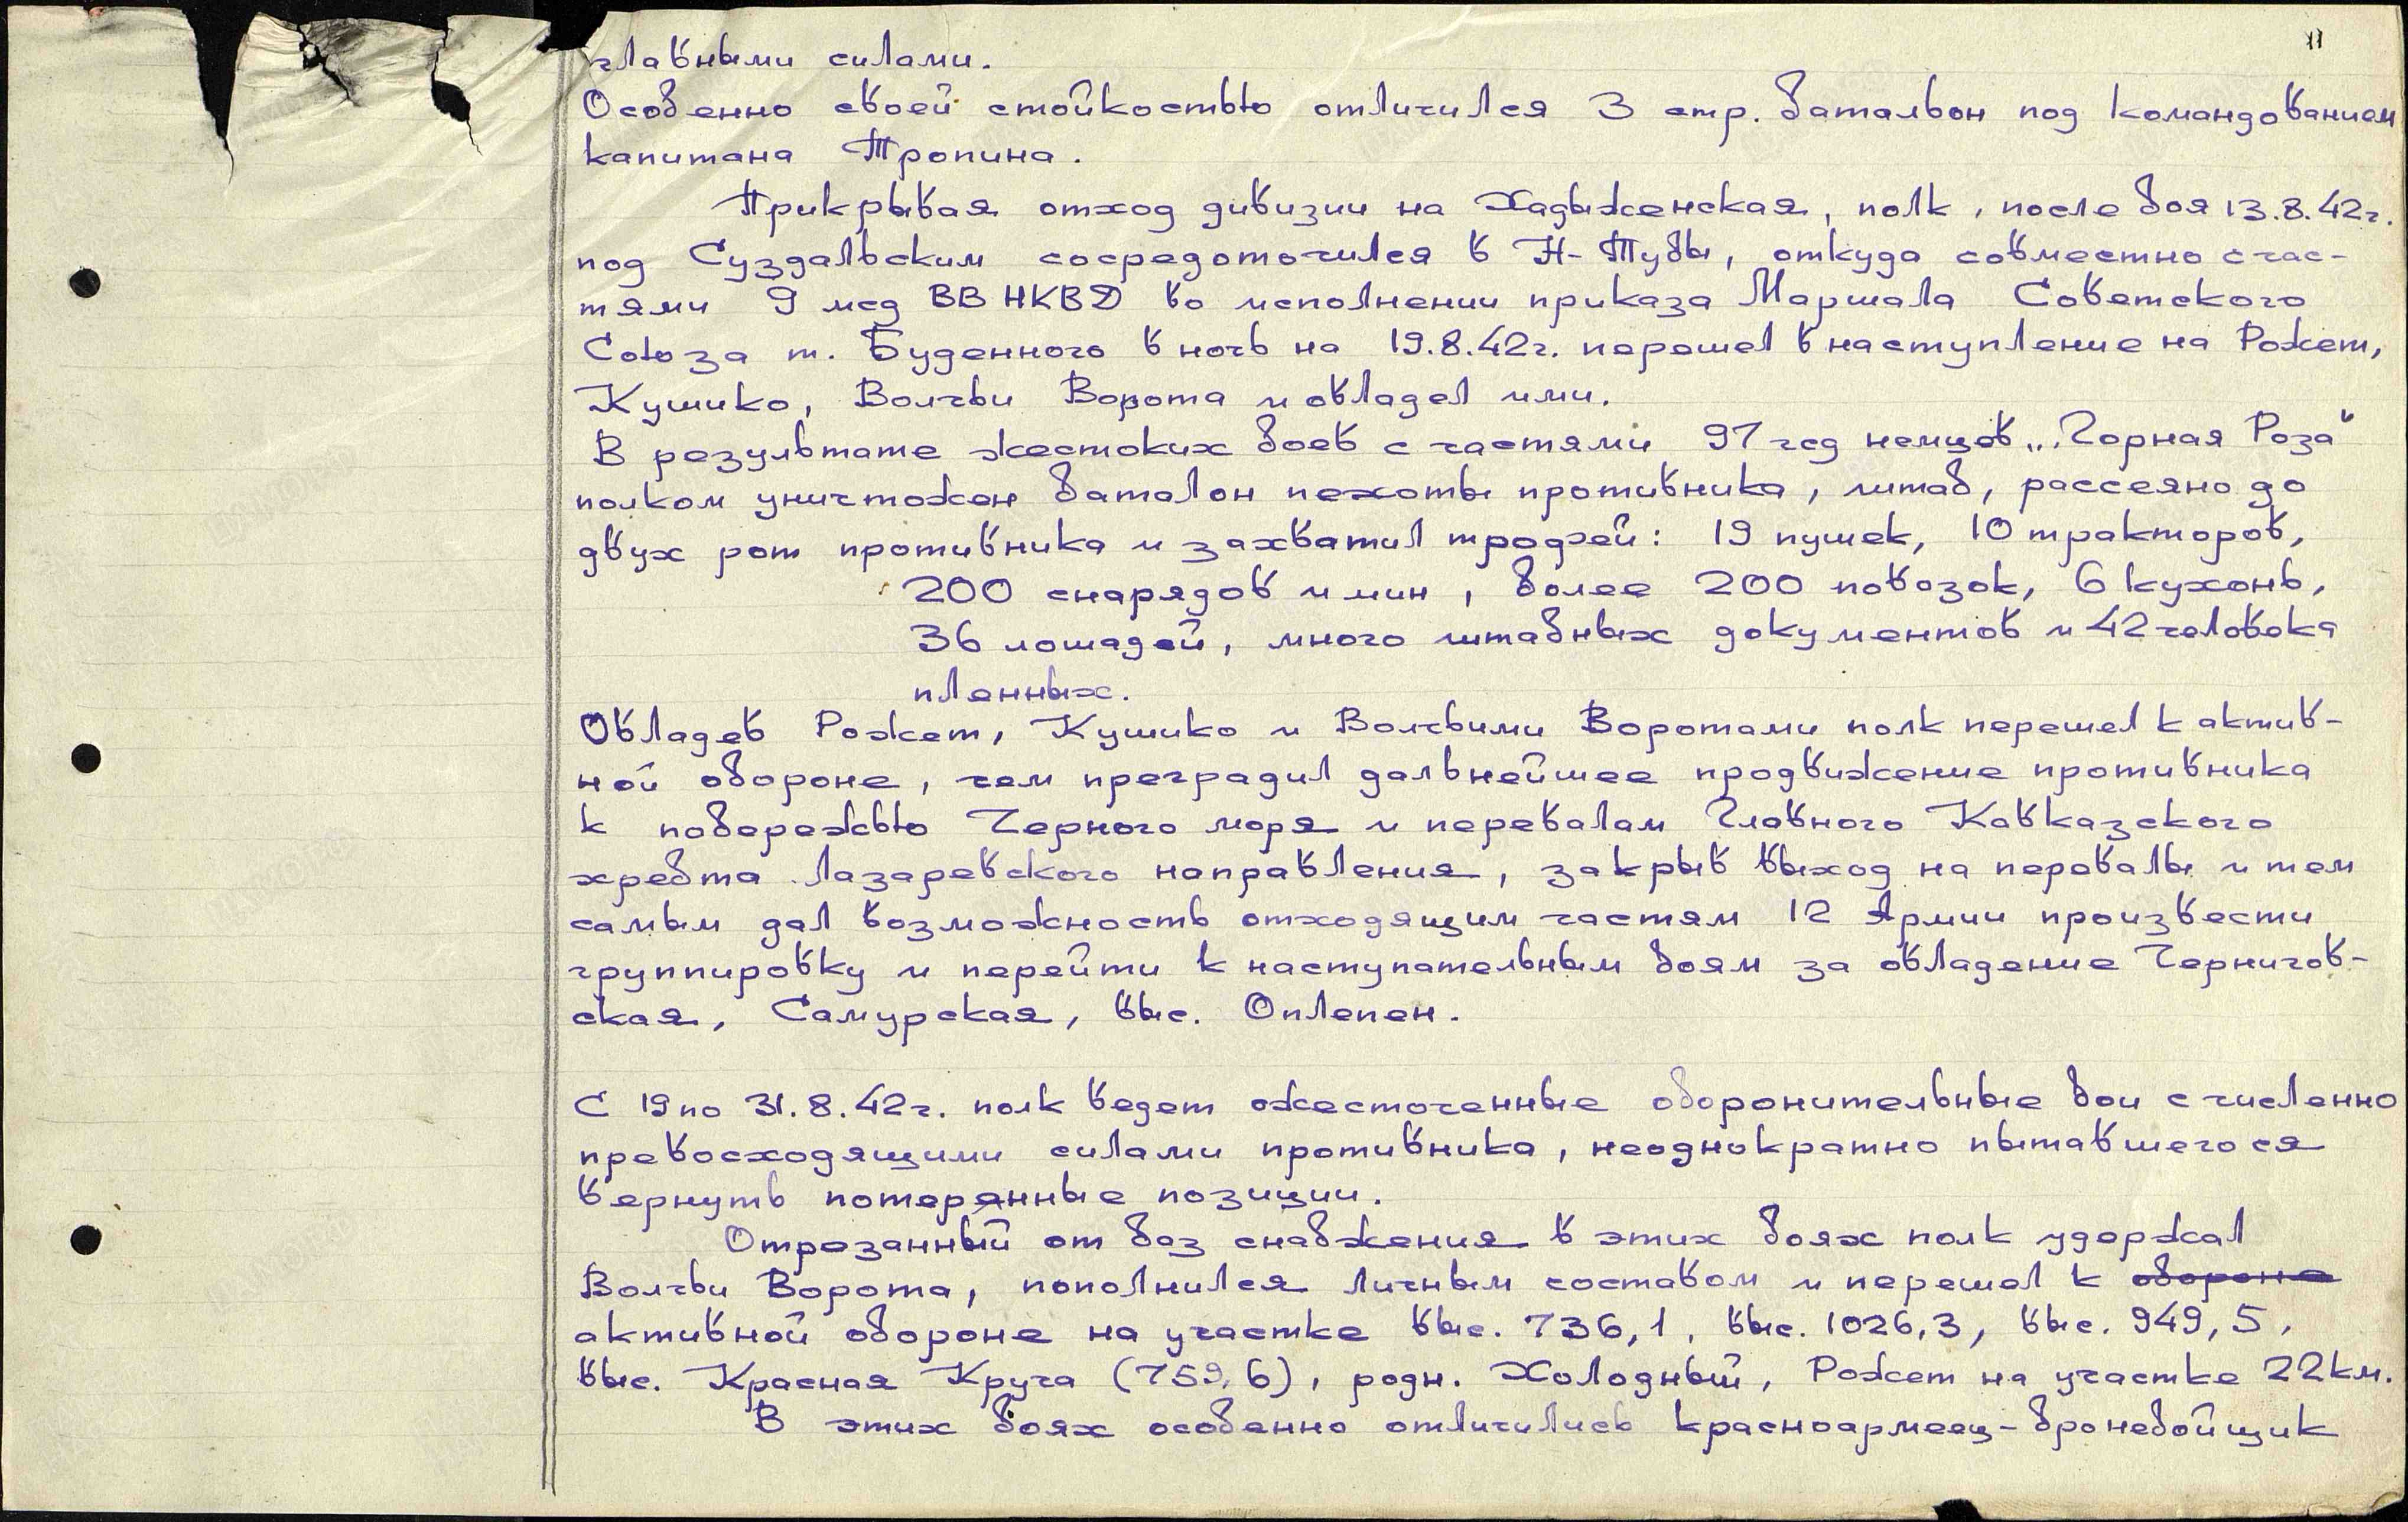 11
главными силами.
Особенно своей стойкостью отличился 3 стр. батальон под командованием
капитана Тропина.
Прикрывая отход дивизии на Хадыженская, полк, после боя 13.8.42г.
под Суздальским сосредоточился в Н-Тубы, откуда совместно с час-
тями 9 мсд ВВ НКВД во исполнении приказа Маршала Советского
Союза т. Буденного в ночь на 19.8.42г. перешел в наступление на Рожет,
Кушико, Волчьи Ворота и овладел ими.
В результате жестоких боев с частями 97 гсд немцев „Горная Роза“
полком уничтожен баталон пехоты противника, штаб, рассеяно до
двух рот противника и захватил трофей: 19 пушек, 10 тракторов,
200 снарядов и мин, более 200 повозок, 6 кухонь,
36 лошадей, много штабных документов и 42 человека
пленных.
Овладев Рожет, Кушико и Волчьими Воротами полк перешел к актив-
ной обороне, чем преградил дальнейшее продвижение противника
к побережью Черного моря и перевалам Главного Кавказского
хребта Лазаревского направления, закрыв выход на перевалы и тем
самым дал возможность отходящим частям 12 Армии произвести
группировку и перейти к наступательным боям за овладение Чернигов-
ская, Самурская, выс. Оплепен.
С 19 по 31.8.42г. полк ведет ожесточенные оборонительные бои с численно
превосходящими силами противника, неоднократно пытавшегося
вернуть потерянные позиции.
Отрезанный от баз снабжения в этих боях полк удержал
Волчьи Ворота, пополнился личным составом и перешел к обороне
активной обороне на участке выс. 736,1, выс. 1026,3, выс. 949,5,
выс. Красная Круча (759,6), родн. Холодный, Рожет на участке 22км.
В этих боях особенно отличились красноармеец-бронебойщик